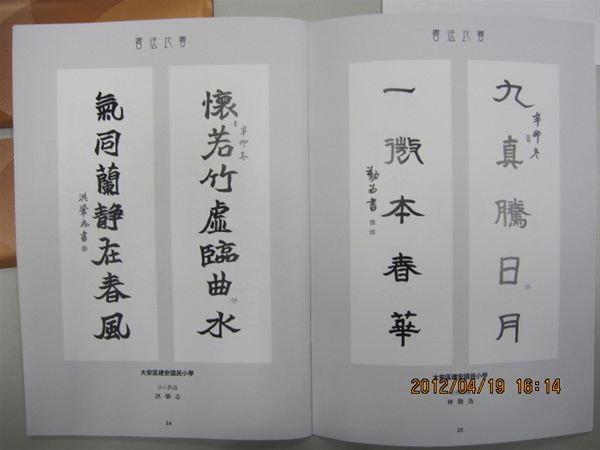 書法比賽
懷若竹虛臨曲水
辛卯冬
氣同蘭靜在春風
大安區建安國民小學
24
書法比賽
九真騰日月
辛卯冬
一微本春華
大安區建安國民小學
25
2012/04/19 16:14